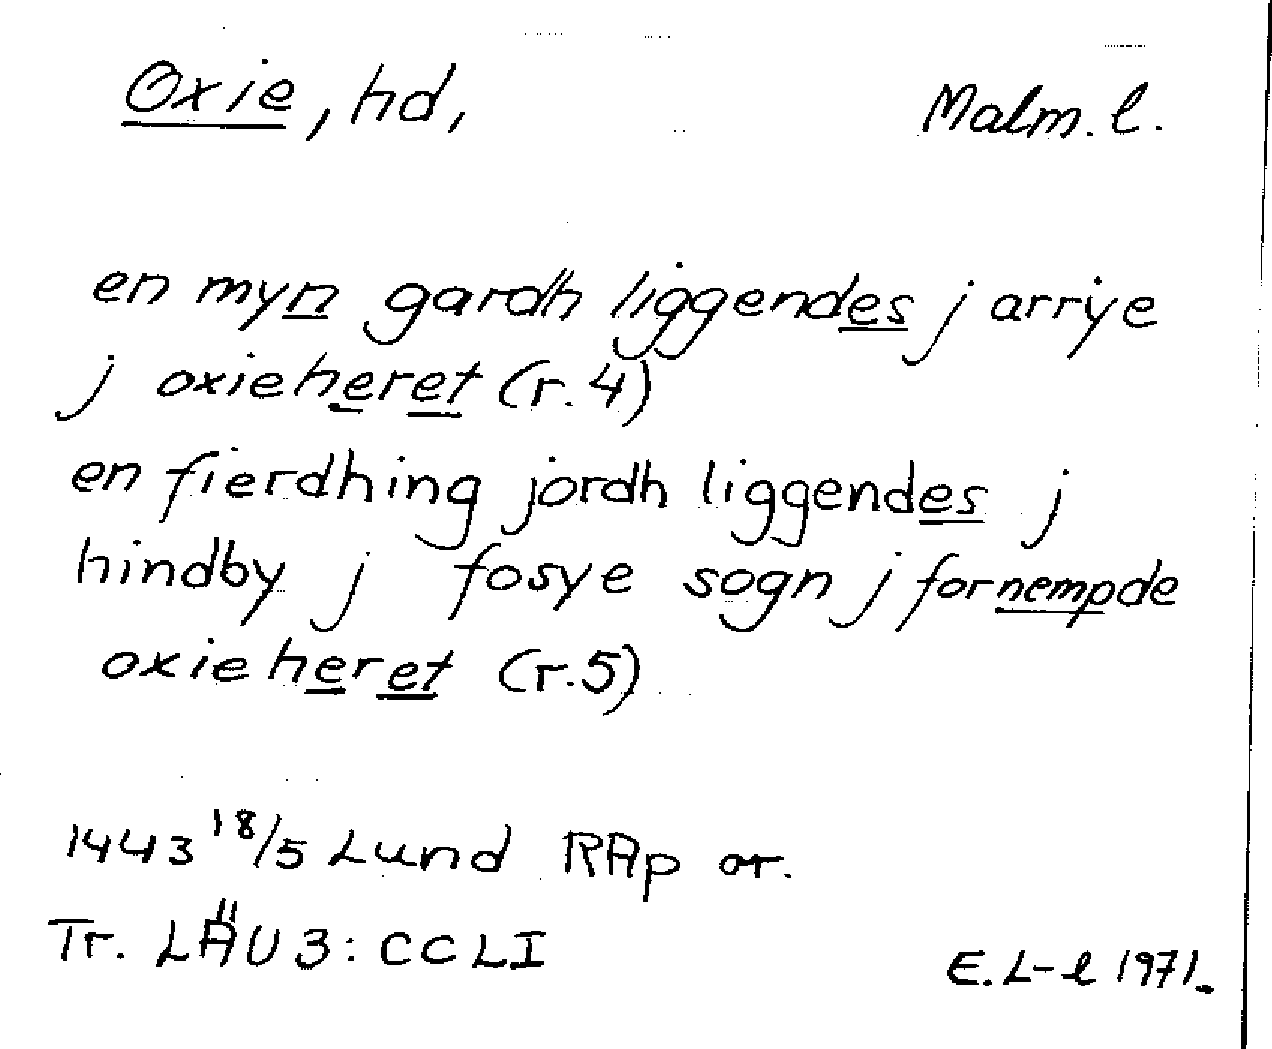 Oxie, hd, Malm. l.
en myn gardh liggendes j arrije
j oxieheret (r. 4)
en fierdhing jordh liggendes j
hindby j fosye sogn j fornempde
oxieheret (r.5)
1443 18/5 Lund RAp or.
Tr. LÄU 3: CCLI
E. L-l 1971.